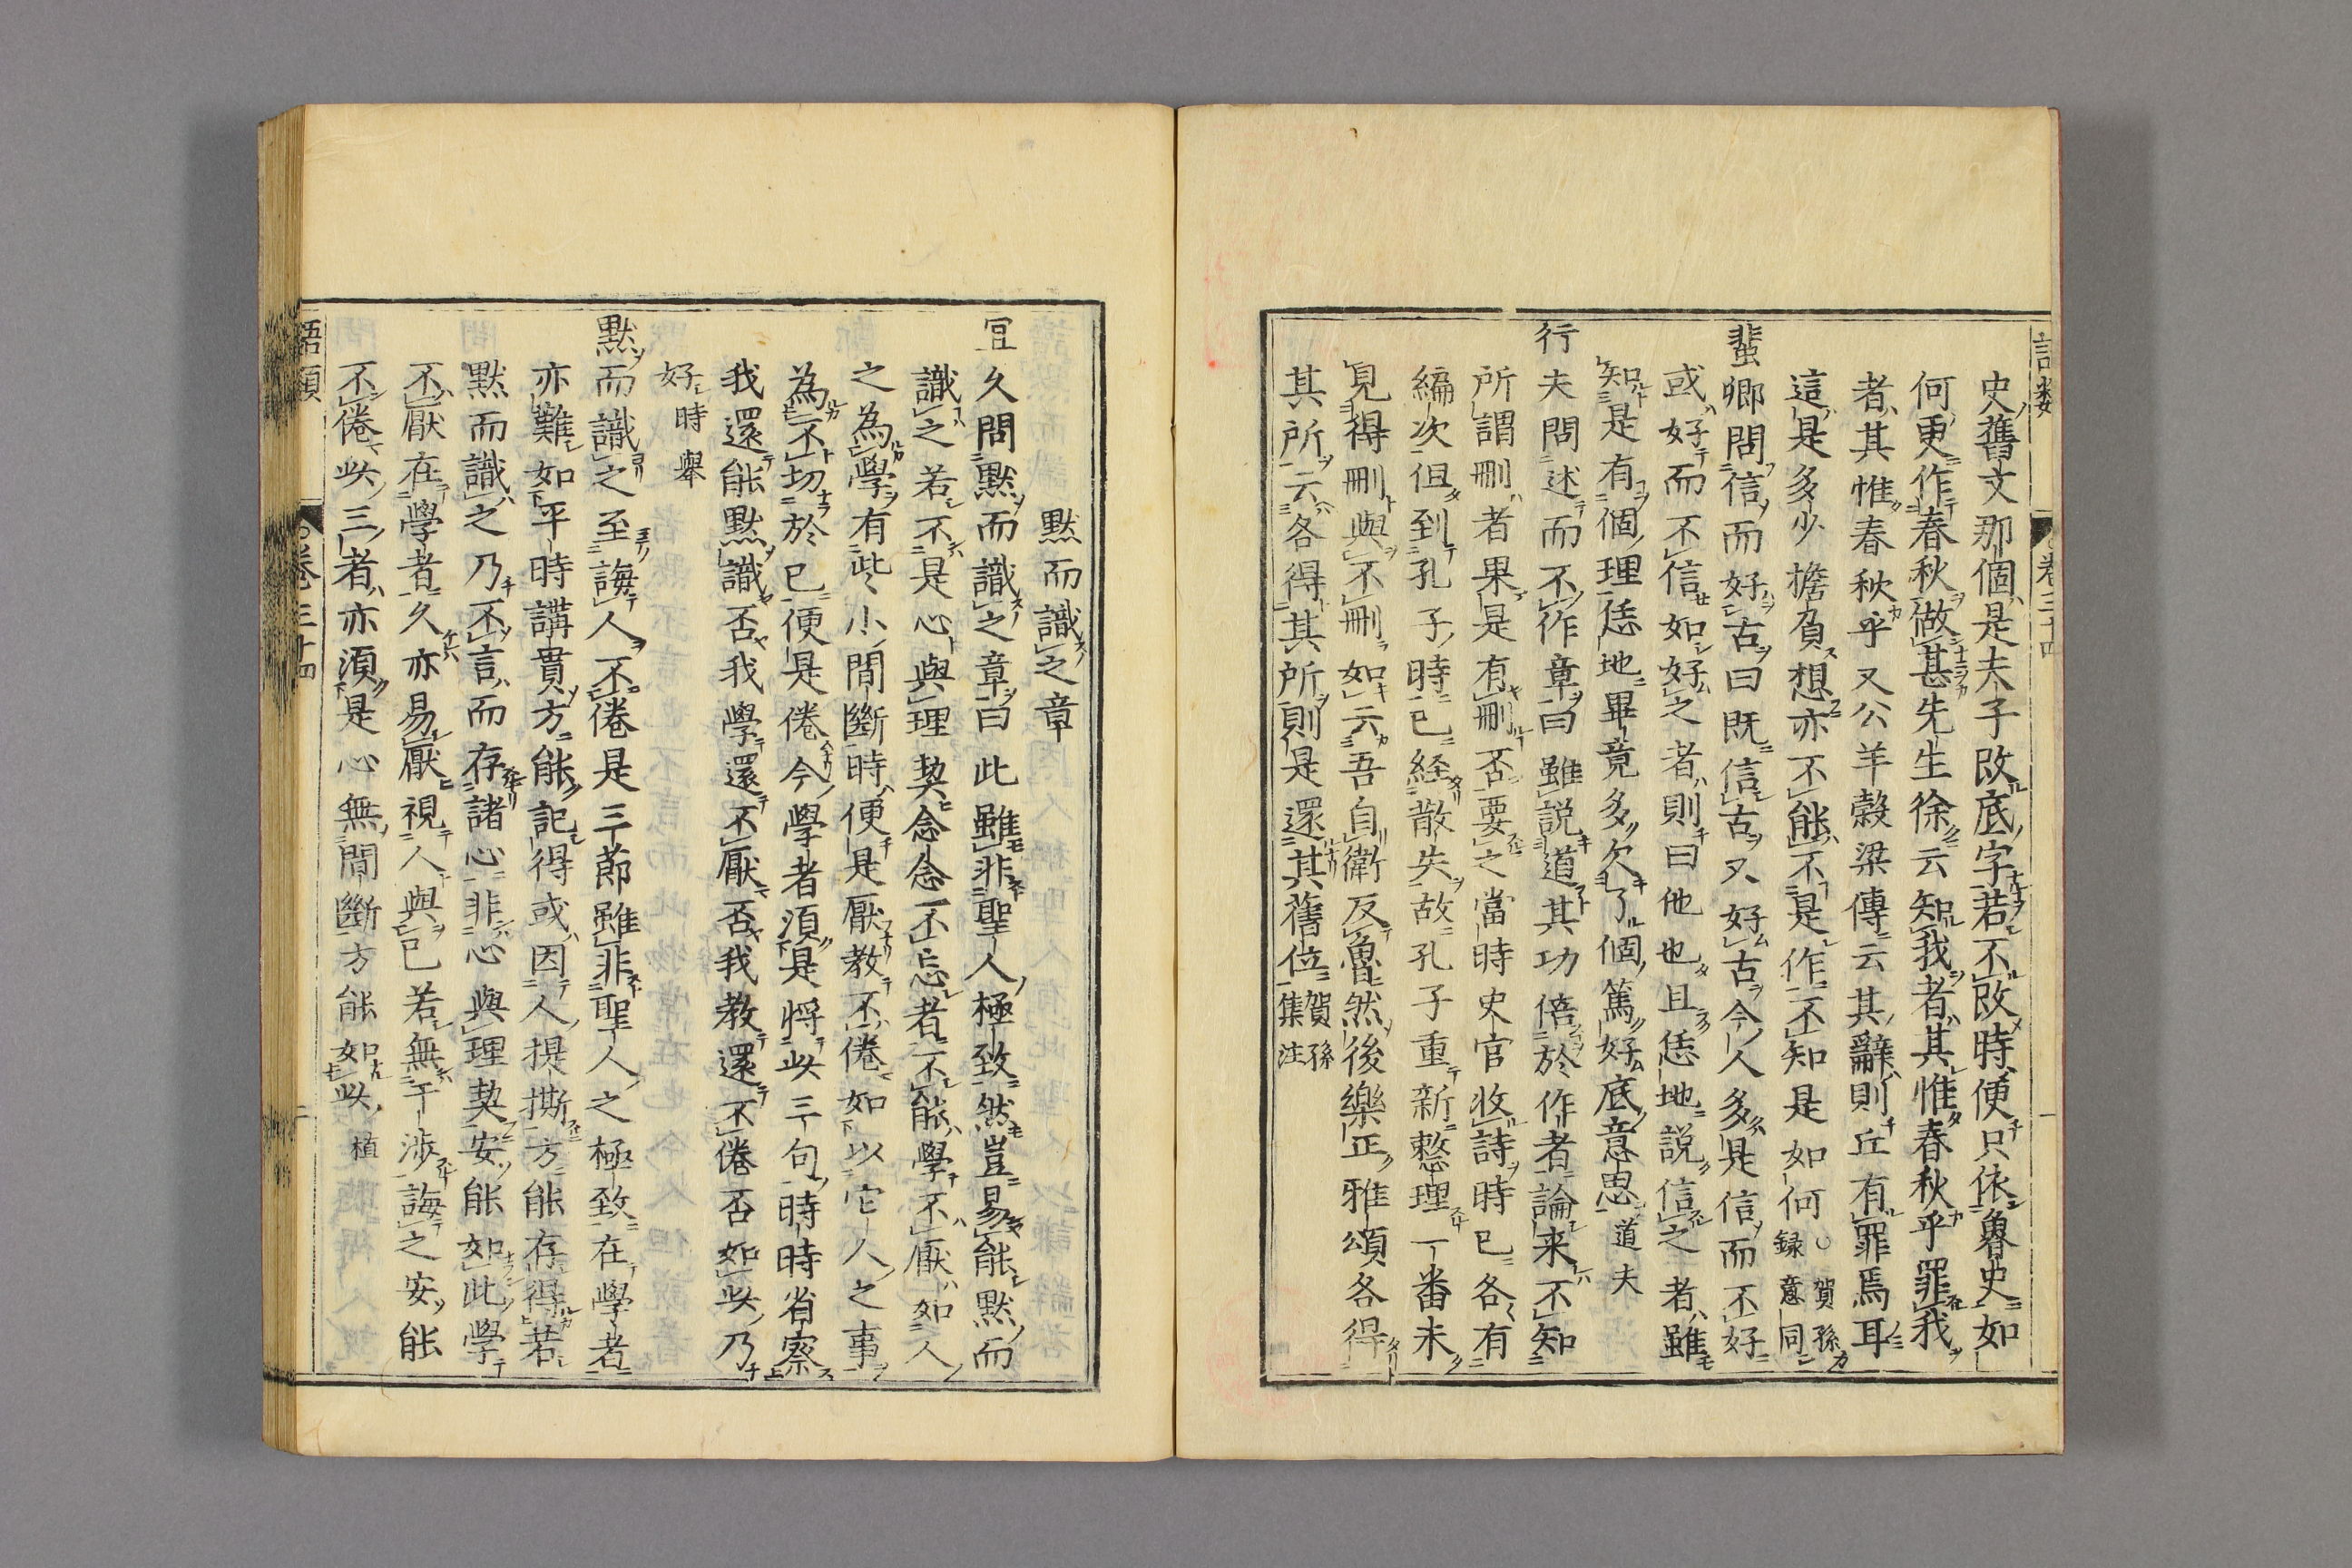 史舊文那個是夫子改底字若不改時便只依魯史如
何更作春秋做甚先生徐云知我者其惟春秋乎罪我
者其惟春秋乎又公羊穀梁傳云其辭則丘有罪焉耳
這是多少擔負想亦不能不是作不知是如何○賀孫録意同
蜚卿問信而好古曰既信古又好古今人多是信而不好
或好而不信如好之者則曰他也且恁地説信之者雖
知是有個理恁地畢竟多欠了個篤好底意思道夫
行夫問述而不作章曰雖説道其功倍於作者論来不知
所謂刪者果是有刪否要之當時史官收詩時已各有
編次但到孔子時已経散失故孔子重新整理一番未
見得刪與不刪如云吾自衛反魯然後樂正雅頌各得
其所云各得其所則是還其舊位賀孫集注
默而識之章
宜久問默而識之章曰此雖非聖人極致然豈易能默而
識之若不是心與理契念念不忘者不能學不厭如人
之為學有些小間斷時便是厭教不倦如以它人之事
為不切於已便是倦今學者須是将此三句時時省察
我還能默識否我學還不厭否我教還不倦否如此乃
好時舉
默而識之至誨人不倦是三節雖非聖人之極致在學者
亦難如平時講貫方能記得或因人提撕方能存得若
默而識之乃不言而存諸心非心與理契安能如此學
不厭在學者久亦易厭視人與已若無干渉誨之安能
不倦此三者亦須是心無間斷方能如此植
語類
卷三十四